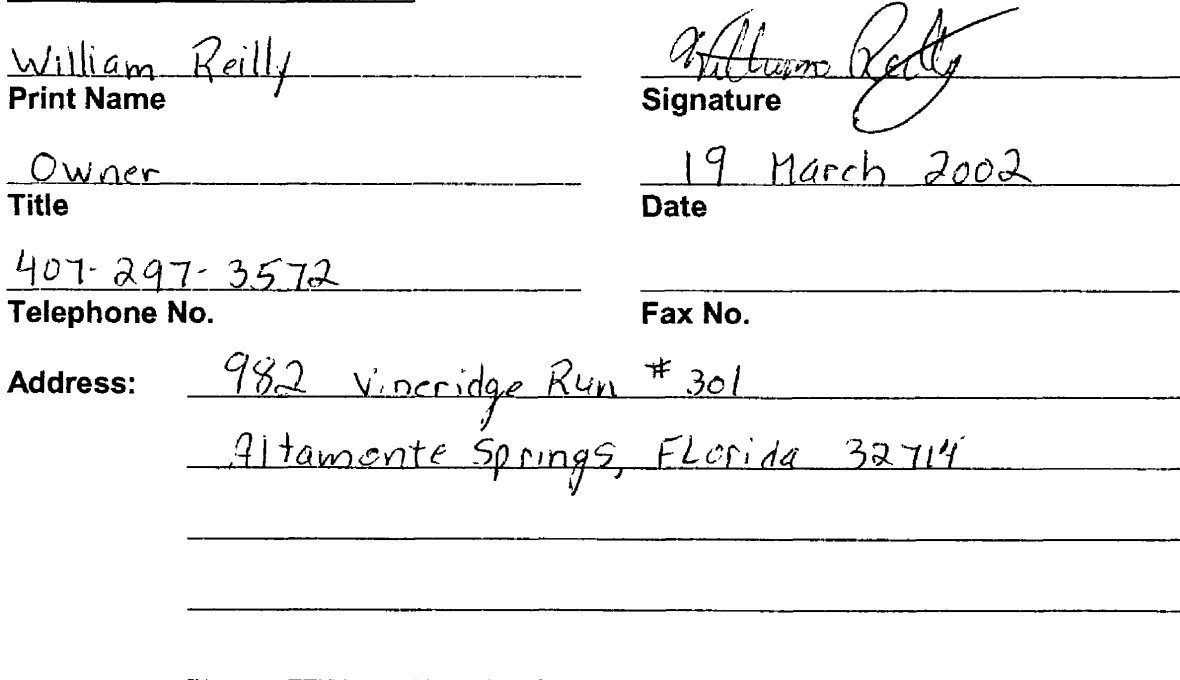 William Reilly William Reilly
Print Name Signature
Owner 19 March 2002
Title Date
407-297-3572
Telephone No. Fax No.
Address: 982 Vineridge Run #301
Altamonte Springs, FLorida 32714